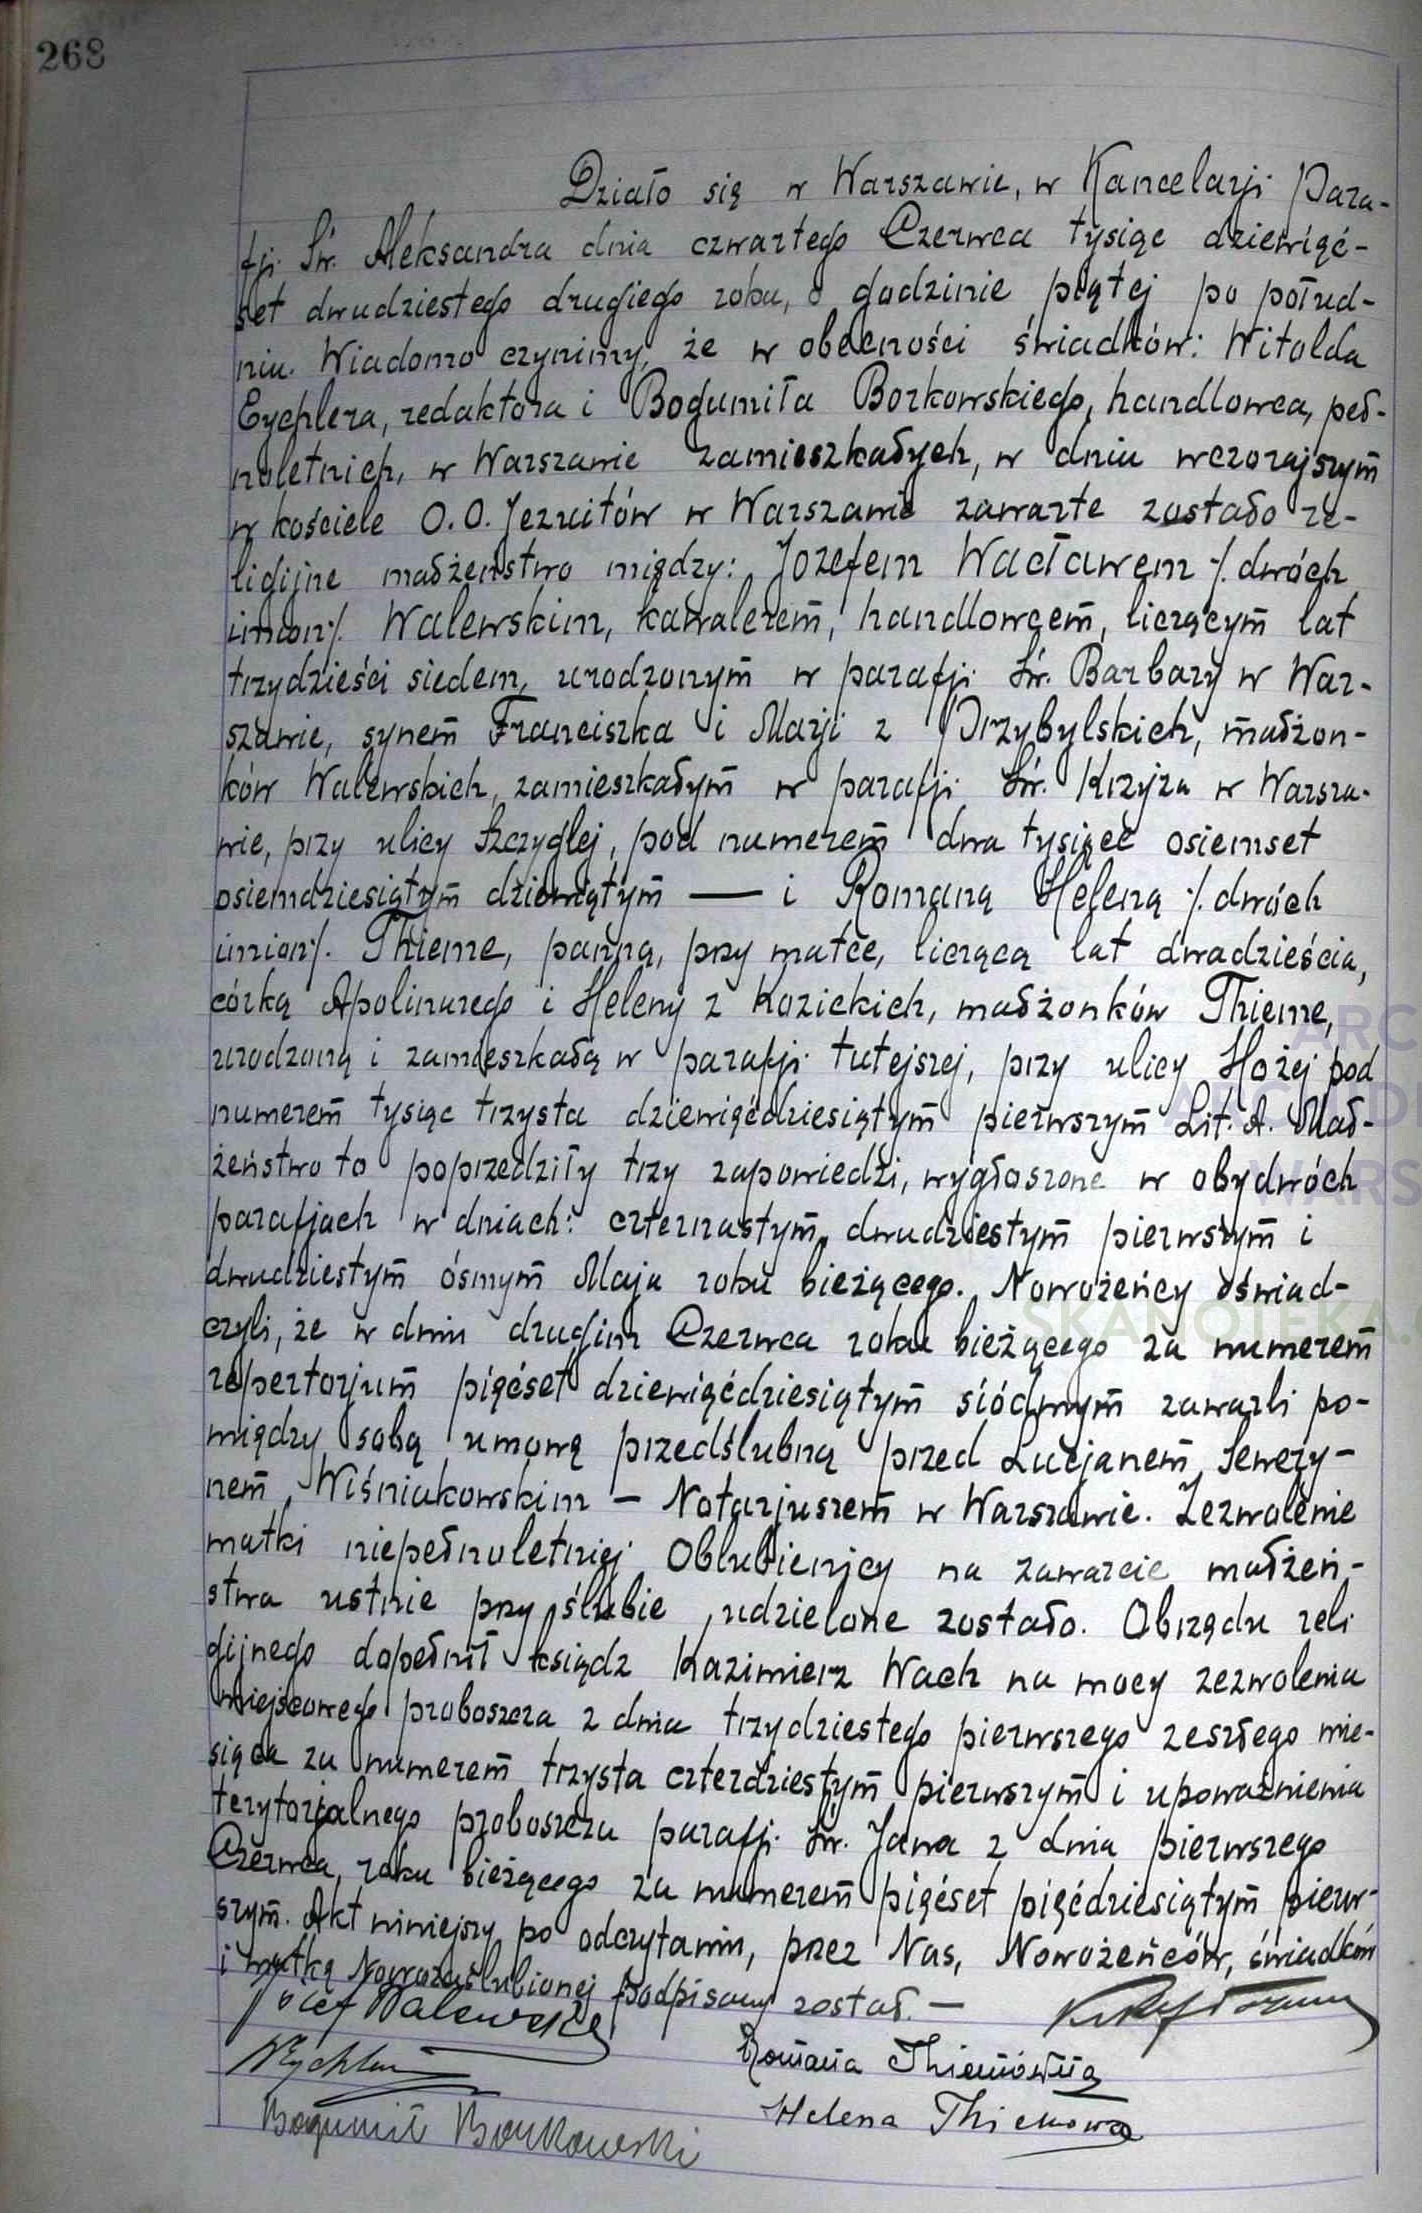 268
Działo się w Warszawie, w Kancelarji Para-
fji Św. Aleksandra dnia czwartego Czerwca tysiąc dziewięć-
set dwudziestego drugiego roku, o godzinie piątej po połud-
niu. Wiadomo czynimy, że w obecności świadków: Witolda
Eychlera, redaktora i Bogumiła Borkowskiego, handlowca, peł-
noletnich, w Warszawie zamieszkałych, w dniu wczorajszym
w kościele O.O. Jezuitów w Warszawie zawarte zostało re-
ligijne małżeństwo między: Józefem Wacławem /. dwóch
imion ./ Walewskim, kawalerem, handlowcem, liczącym lat
trzydzieści siedem, urodzonym w parafji Św. Barbary w War-
szawie, synem Franciszka i Marji z Przybylskich, małżon-
ków Walewskich, zamieszkałym w parafji Św. Krzyża w Warsza-
wie, przy ulicy Szczyglej, pod numerem dwa tysiące osiemset
osiemdziesiątym dziewiątym — i Romaną Heleną /. dwóch
imion ./. Thieme, panną, przy matce, liczącą lat dwadzieścia,
córką Apolinarego i Heleny z Kozickich, małżonków Thieme,
urodzoną i zamieszkałą w parafji tutejszej, przy ulicy Hożej pod
numerem tysiąc trzysta dziewięćdziesiątym pierwszym Lit. A. Mał-
żeństwo to poprzedziły trzy zapowiedzi, wygłoszone w obydwóch
parafjach w dniach: czternastym, dwudziestym pierwszym i
dwudziestym ósmym Maja roku bieżącego. Nowożeńcy oświad-
czyli, że w dniu drugim Czerwca roku bieżącego za numerem
repertorjum pięćset dziewięćdziesiątym siódmym zawarli po-
między sobą umowę przedślubną przed Lucjanem Sewery-
nem Wiśniakowskim — Notarjuszem w Warszawie. Zezwolenie
matki niepełnoletniej Oblubienicy na zawarcie małżeń-
stwa ustnie przy ślubie udzielone zostało. Obrzędu reli
gijnego dopełnił ksiądz Kazimierz Wach na mocy zezwolenia
miejscowego proboszcza z dnia trzydziestego pierwszego zeszłego mie-
siąca za numerem trzysta czterdziestym pierwszym i upoważnienia
terytorjalnego proboszcza parafji Św. Jana z dnia pierwszego
Czerwca, roku bieżącego za numerem pięćset pięćdziesiątym pierw-
szym. Akt niniejszy po odczytaniu, przez Nas, Nowożeńców, świadków
i matkę Nowozaślubionej podpisany został. —
Józef Walewski
WEychler
Romana Thiemówna
Bogumił Borkowski
Helena Thiemowa
ARC
ARCHID
WARS
SKANOTEKA.